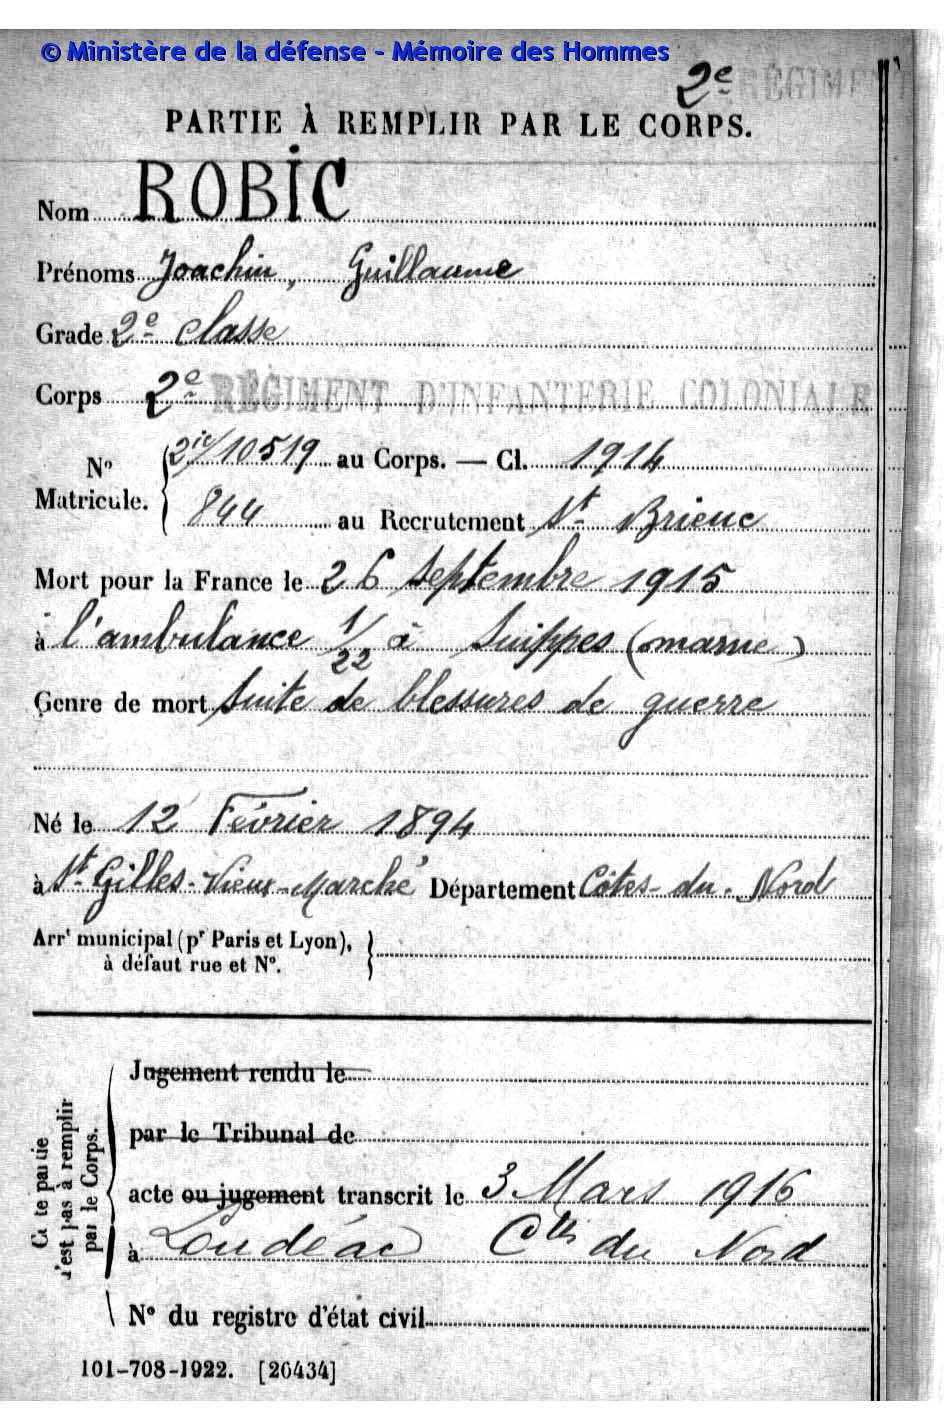 © Ministère de la défense - Mémoire des Hommes
2e RÉGIMENT
PARTIE À REMPLIR PAR LE CORPS.
Nom ROBIC
Prénoms Joachin, Guillaume
Grade 2e classe
Corps 2e RÉGIMENT D'INFANTERIE COLONIALE
No Matricule. 2ic/10519 au Corps. — Cl. 1914
844 au Recrutement St Brieuc
Mort pour la France le 26 Septembre 1915
à l'ambulance 1/22 à Suippes (marne)
Genre de mort Suite de blessures de guerre
Né le 12 Février 1894
à St Gilles-Vieux-Marché Département Côtes-du-Nord
Arrt municipal (pr Paris et Lyon),
à défaut rue et No.
Cette partie
n'est pas à remplir
par le Corps.
Jugement rendu le
par le Tribunal de
acte ou jugement transcrit le 3 Mars 1916
à Loudéac Ctes du Nord
No du registre d'état civil
101-708-1922. [26434]